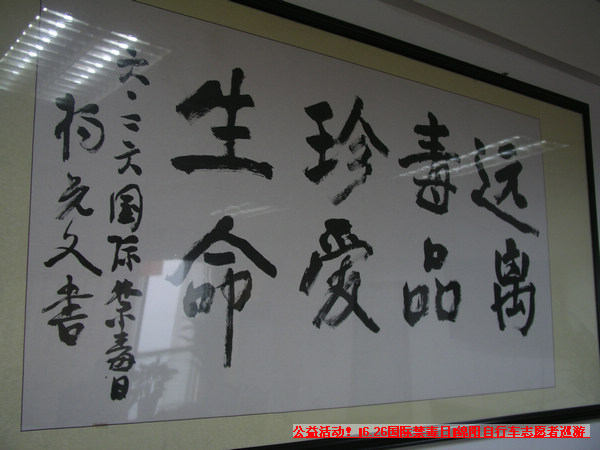 远离
毒品
珍爱
生命
六·二六国际禁毒日
杨光文书
公益活动！16.26国际禁毒日绵阳自行车志愿者巡游